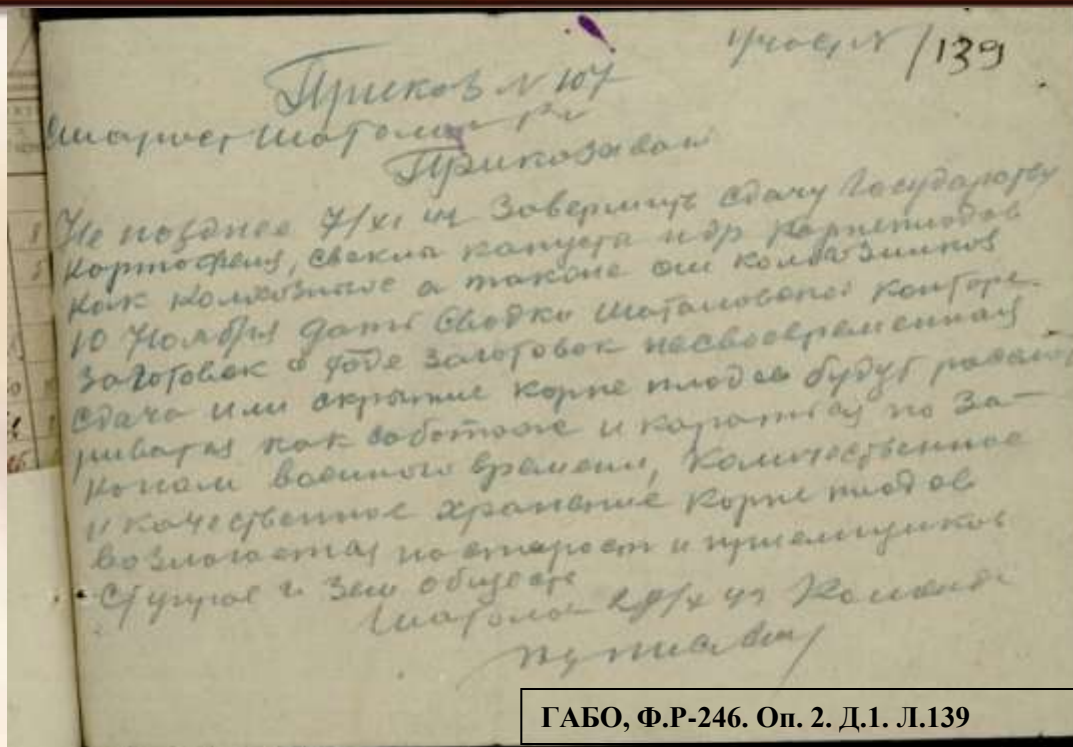 /139
Приказ N 107
Приказываю
Не позднее 7/XI завершить сдачу Государству
Картофеля, свекла капуста и др корнеплодов
как колхозные а также от колхозников
10 Ноября дать сводки Шаталовской конторе
Заготовок о ходе заготовок несвоевременная
сдача или скрытие корне плодов будут рассмат
риватся как саботаж и каратся по За-
конам военного времени, количественное
и качественное хранение корне плодов
возлогается на старост и приемщиков
Зем обществ
Комендант
ГАБО, Ф.Р-246. Оп. 2. Д.1. Л.139